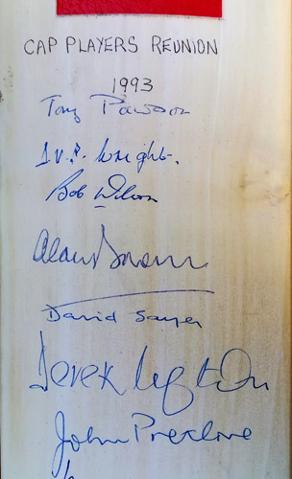 CAP PLAYERS REUNION
1993
Tony Pawson
D.V.P. Wright.
Bob Wilson
Alan
David Sayer
Derek Ufton
John Pretlove